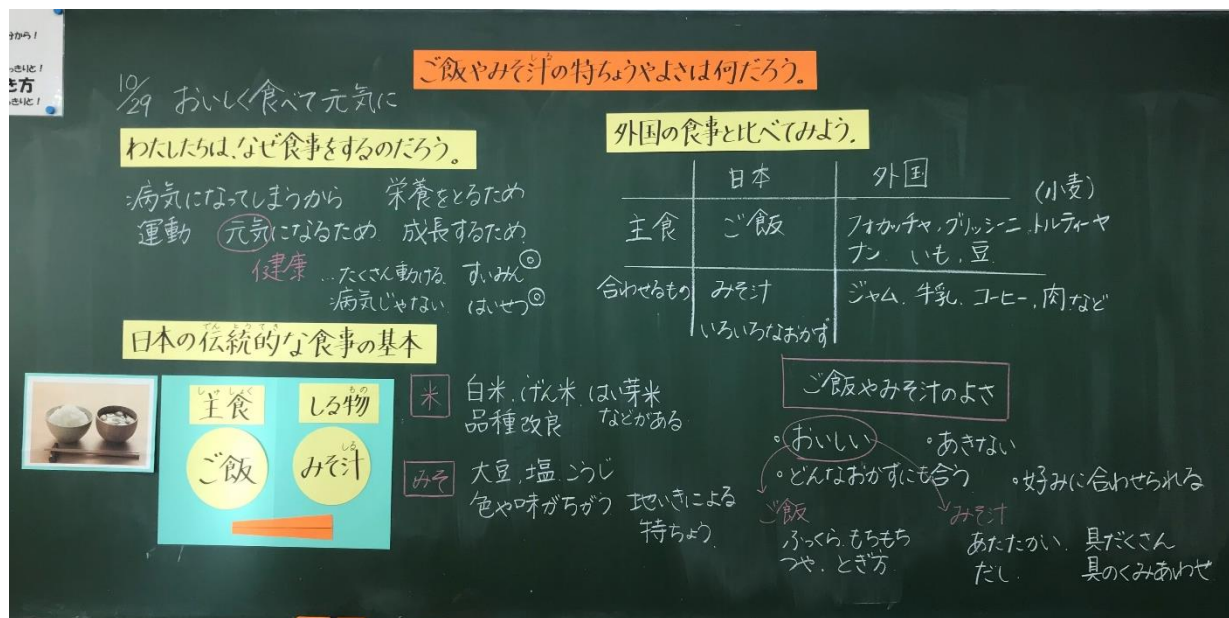 ご飯やみそ汁の特ちょうやよさは何だろう。
10/29 おいしく食べて元気に
わたしたちは、なぜ食事をするのだろう。
病気になってしまうから 栄養をとるため
運動 元気になるため 成長するため
健康 …たくさん動ける すいみん◎
病気じゃない はいせつ◎
日本の伝統的な食事の基本
でんとうてき
しゅしょく
主食
ご飯
しる物
もの
みそ汁
しる
米 白米、げん米、はい芽米
品種改良 などがある
みそ 大豆、塩、こうじ
色や味がちがう 地いきによる
特ちょう
外国の食事と比べてみよう.
日本 外国
(小麦)
主食 ご飯 フォカッチャ、グリッシーニ、トルティーヤ
ナン、いも、豆
合わせるもの みそ汁 ジャム、牛乳、コーヒー、肉など
いろいろなおかず
ご飯やみそ汁のよさ
・おいしい ・あきない
・どんなおかずにも合う ・好みに合わせられる
ご飯 みそ汁
ふっくら、もちもち あたたかい、具だくさん
つや、とぎ方 だし 具のくみあわせ